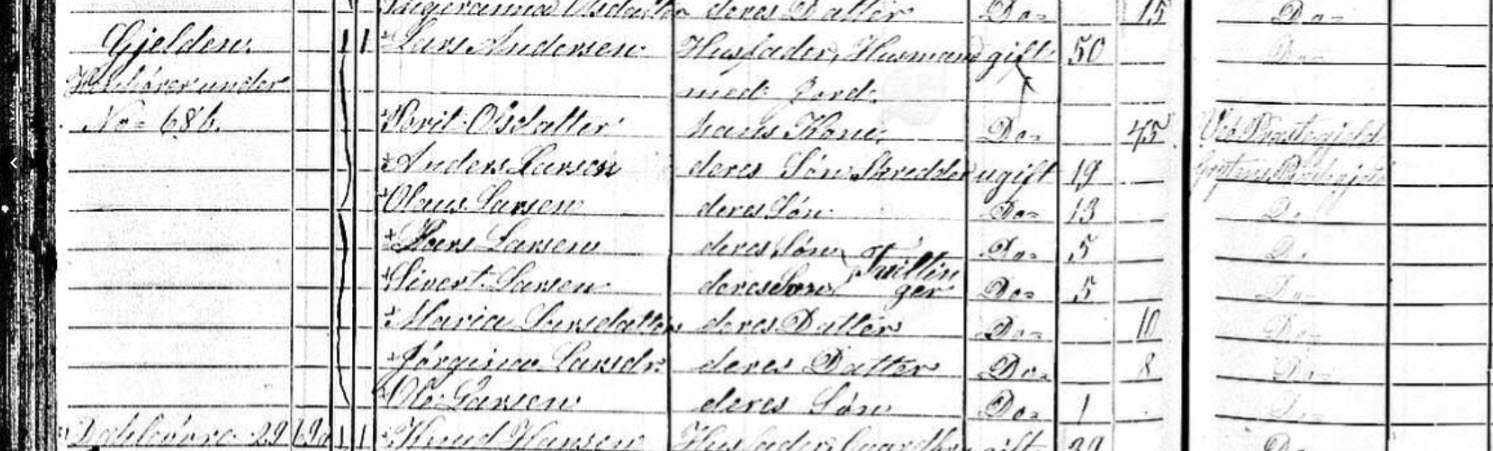 Olsdatter deres Datter Do- 15 Do-
Gjelden 1 1 Lars Andersen Husfader, Husmand gift 50 Do-
under med Jord.
No= 686. Brit Olsdatter hans Kone Do- 45 Præstegjeld
Anders Larsen deres Søn Skredder ugift 19 Præstegjeld
Olaus Larsen deres Søn Do- 13 Do
Lars Larsen deres Søn Tvillin Do- 5 Do
Sivert Larsen deres Søn ger Do- 5 Do-
Maria Larsdatter deres Datter Do- 10 Do-
Jørgina Larsdr deres Datter Do- 8 Do-
Ole Larsen deres Søn Do- 1 Do-
29 1 1 Knud Hansen Husfader, gift 39 Do-